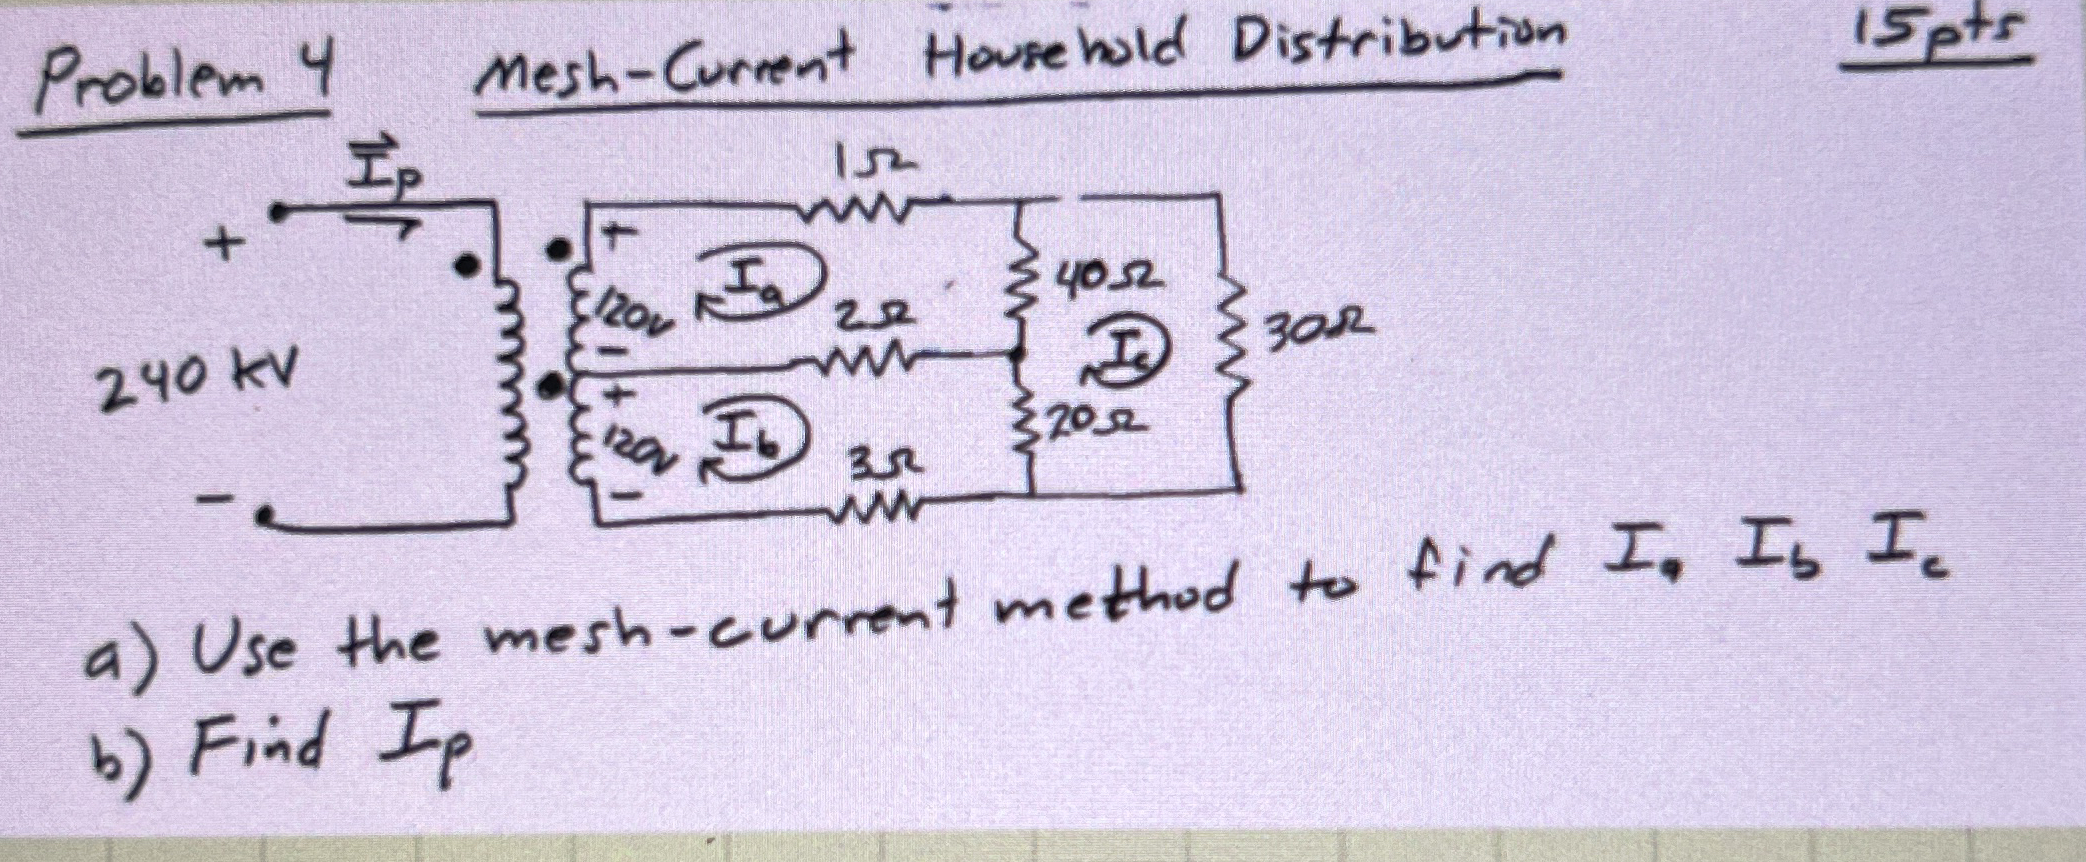 Problem 4 Mesh-Current Household Distribution 15pts
Ip
1Ω
+
+
Ia
120v
2Ω
40Ω
Ic
30Ω
240 kV
-
+
Ib
120v
3Ω
20Ω
-
-
a) Use the mesh-current method to find Ia Ib Ic
b) Find Ip